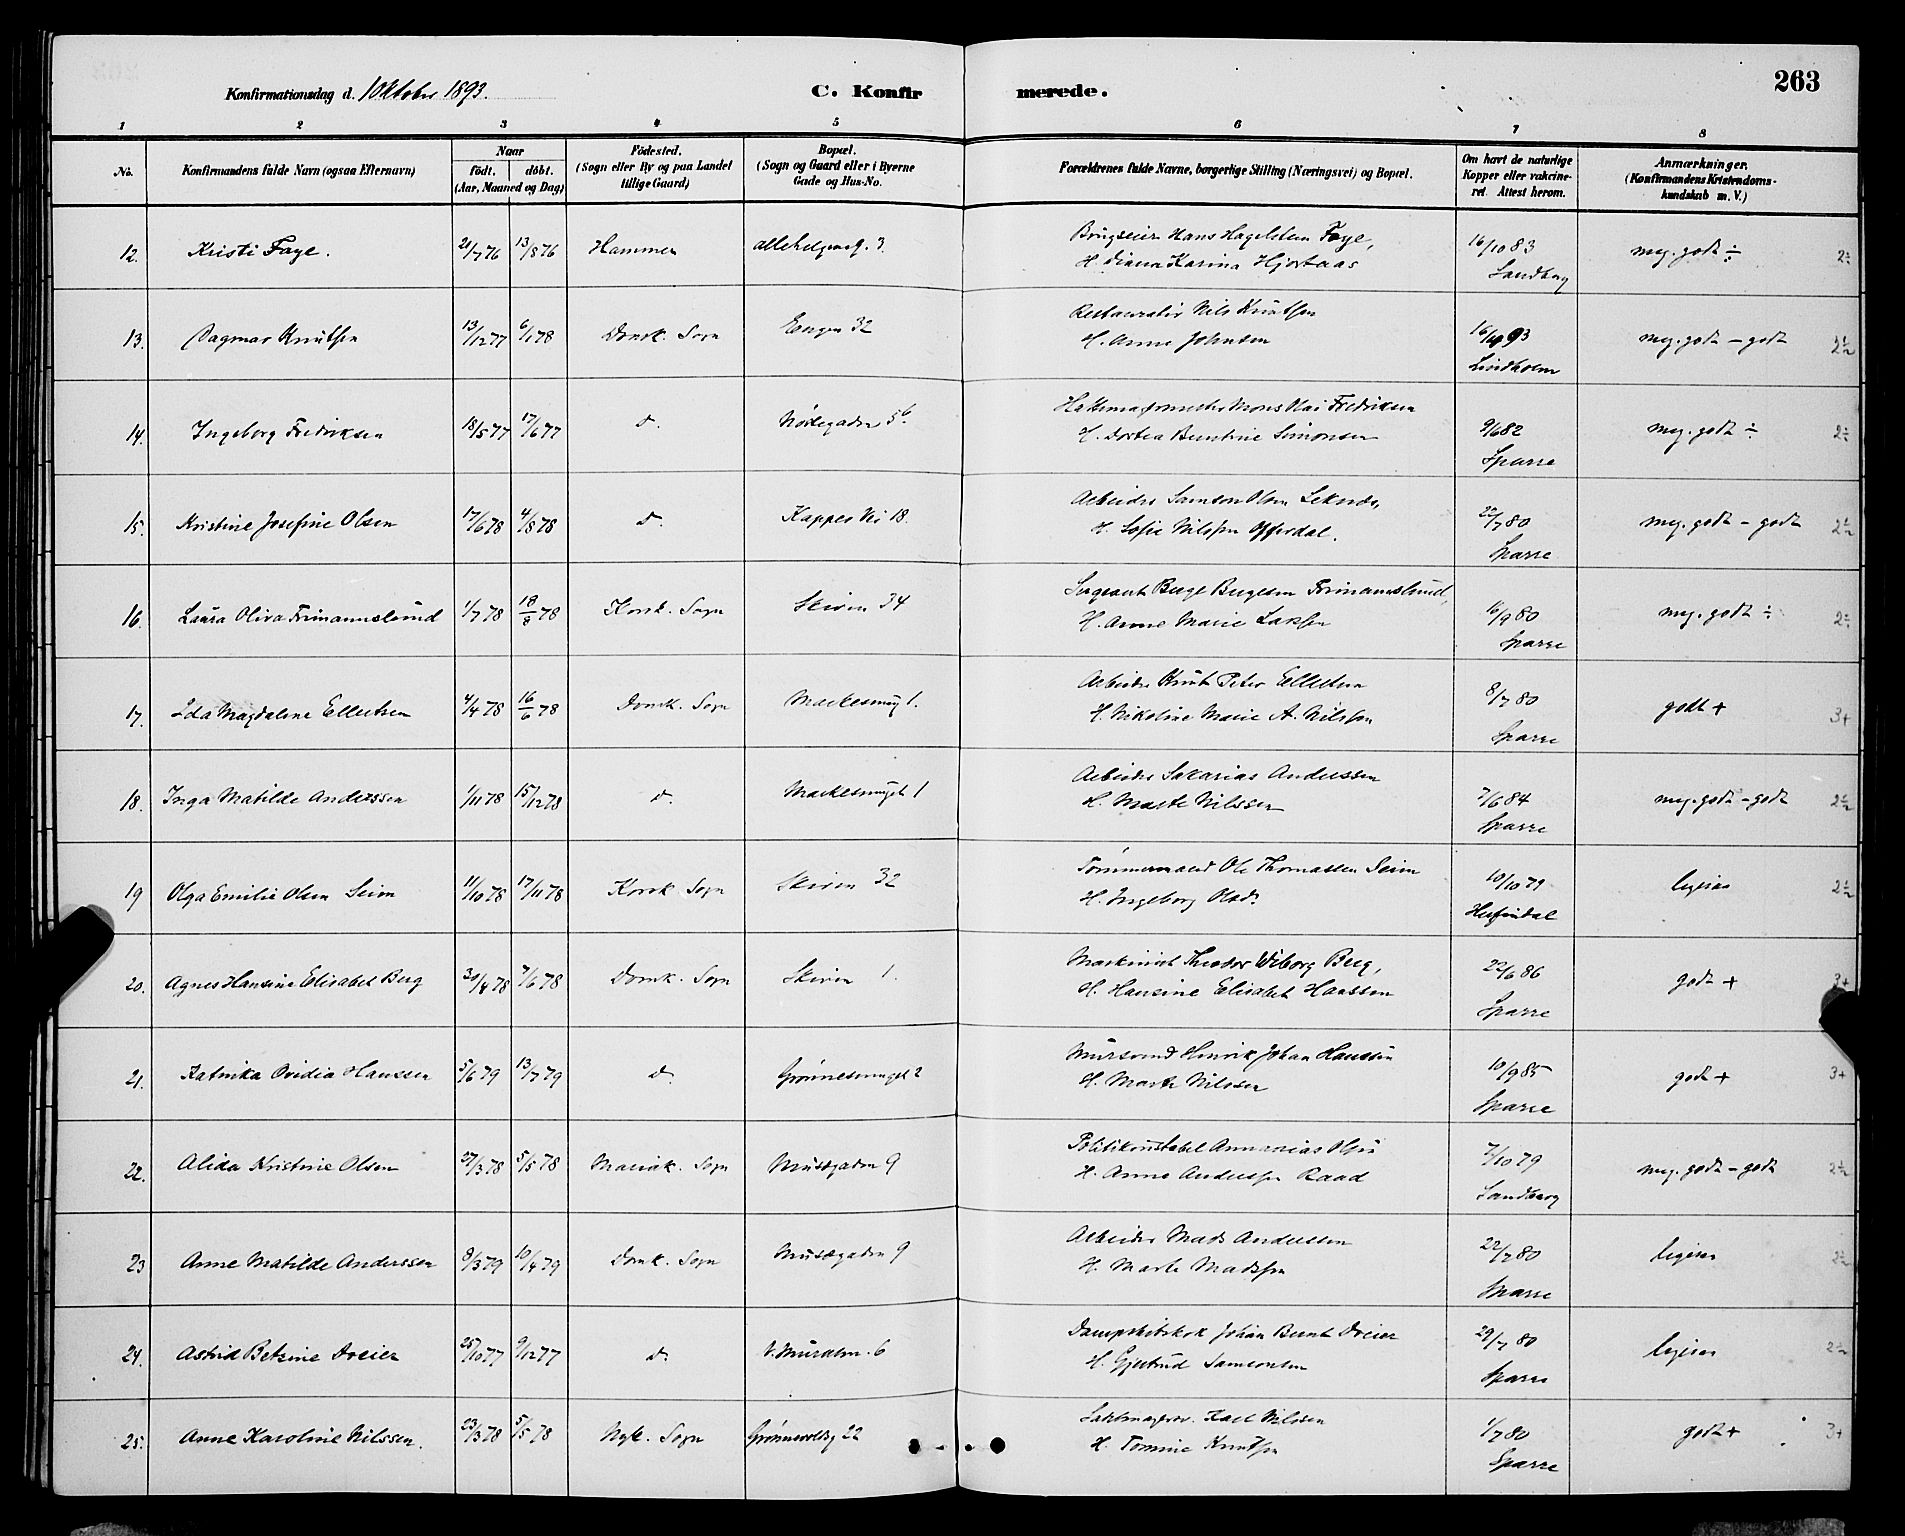 263
Konfirmationsdag d. 1 Oktober 1893.
C. Konfirmerede.
1 2 3 4 5 6 7 8
No. Konfirmandens fulde Navn (ogsaa Efternavn) Naar födt. döbt. (Aar, Maaned og Dag) Födested. (Sogn eller By og paa Landet tillige Gaard) Bopæl. (Sogn og Gaard eller i Byerne Gade og Hus-No. Forældrenes fulde Navne, borgerlige Stilling (Næringsvei) og Bopæl. Om havt de naturlige Kopper eller vakcineret. Attest herom. Anmærkninger. (Konfirmandens Kristendomskundskab m. V.)
12. Kristi Faye. 21/7 76 13/8 76 Hammer Allehelgensg. 3. Brugseier Hans Hagelsteen Faye, 16/10 83 meg. godt ÷ 2÷
H. Diana Karina Hjortaas Sandberg
13. Dagmar Knutsen 13/12 77 6/1 78 Domk. Sogn Engen 32 Restauratör Nils Knutsen 16/9 93 meg. godt - godt 2½
H. Anne Johnsen Lindholm
14. Ingeborg Fredriksen 18/5 77 17/6 77 d. Nöstegaden 56 Hattemagermester Mons Olai Fredriksen 9/6 82 meg. godt ÷ 2÷
H. Dortea Berntine Simonsen Sparre
15. Kristine Josefine Olsen 17/6 78 4/8 78 d. Kappes Vei 18. Arbeider Samson Olsen 22/7 80 meg. godt - godt 2½
H. Sofie Nilssen Offerdal. Sparre
16. Laura Oliva Frimannslund 1/7 78 18/8 78 Korsk. Sogn Skiven 34 Sergeant Berge Bergesen Frimannslund, 6/9 80 meg. godt ÷ 2÷
H. Anne Marie Larssen Sparre
17. Ida Magdalene Ellertsen 4/4 78 16/6 78 Domk. Sogn Markesmug 1. Arbeider Knut Peter Ellertsen 8/7 80 godt + 3+
H. Nikoline Marie A. Nilssen Sparre
18. Inga Matilde Anderssen 1/11 78 15/12 78 d. Markesmuget 1 Arbeider Sakarias Anderssen 7/6 84 meg. godt - godt 2½
H. Marte Nilssen Sparre
19 Olga Emilie Olsen Seim 11/10 78 17/11 78 Korsk. Sogn Skiven 32 Tömmermand Ole Thomassen Seim 10/10 79 ligesaa 2½
H. Ingeborg Olsdr. Herfindal
20. Agnes Hansine Elisabet Berg 30/4 78 7/6 78 Domk. Sogn Skiven 1. Maskinist Theodor Wiborg Berg, 22/6 86 godt + 3+
H. Hansine Elisabet Hanssen Sparre
21. Katinka Ovidia Hanssen 5/6 79 13/7 79 d. Grönnesmuget 2 Mursvend Henrik Johan Hanssen 10/9 85 godt + 3+
H. Marte Nilssen Sparre
22. Alida Kristine Olsen 27/3 78 5/5 78 Mariak. Sogn Musegaden 9 Politikonstabel Annanias Olsen 7/10 79 meg. godt - godt 2½
H. Anna Anderssen Raad Sandberg
23 Anne Matilde Anderssen 8/3 79 10/4 79 Domk. Sogn Musegaden 9 Arbeider Mads Anderssen 22/7 80 ligesaa 2½
H. Marte Madssen Sparre
24. Astrid Betzine Dreier 25/10 77 9/12 77 d. V. Muralm. 6 Dampskibskok Johan Bernt Dreier 29/7 80 ligesaa 2½
H. Gjertrud Samsonsen Sparre
25. Anne Karoline Nilssen. 23/3 78 5/5 78 Nyk. Sogn Grönnevolds 22 Karl Nilssen 1/7 80 godt + 3+
H. Tomine Knutsen Sparre